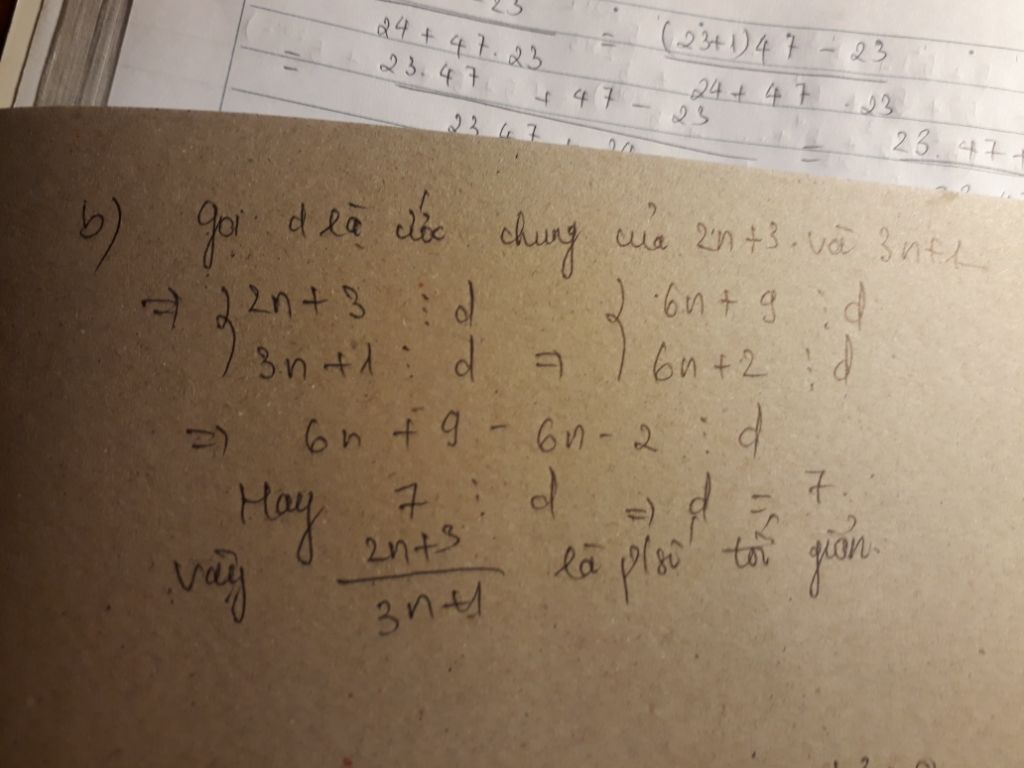 23
24 + 47.23 = (23+1)47 - 23
= 23.47 + 47 - 23 24 + 47 . 23
23 47 = 23. 47 +
b) gọi d là ước chung của 2n+3 và 3n+1
=> { 2n + 3 ⋮ d { 6n + 9 ⋮ d
3n + 1 ⋮ d => 6n + 2 ⋮ d
=> 6n + 9 - 6n - 2 ⋮ d
Hay 7 ⋮ d => d = 7.
vậy 2n+3 là p/số tối giản.
3n+1